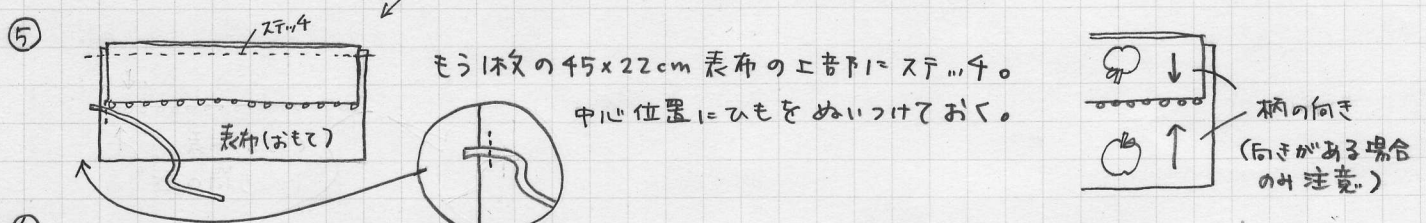 ⑤
ステッチ
もう1枚の45×22cm表布の上部にステッチ。
中心位置にひもをぬいつけておく。
表布(おもて)
柄の向き
(向きがある場合
のみ注意。)